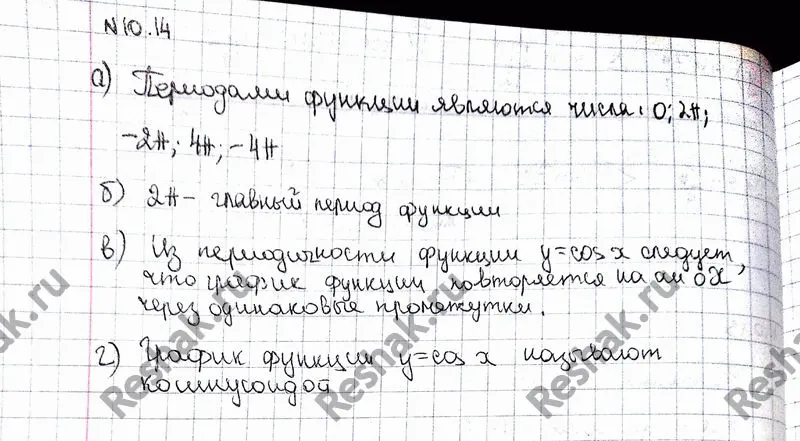 N10.14
а) Периодами функции являются числа: 0; 2π;
-2π; 4π; -4π
б) 2π - главный период функции
в) Из периодичности функции y=cos x следует,
что график функции повторяется на оси OX
через одинаковые промежутки.
г) График функции y=cos x называют
косинусоидой
Reshak.ru
Reshak.ru
Reshak.ru
Reshak.ru